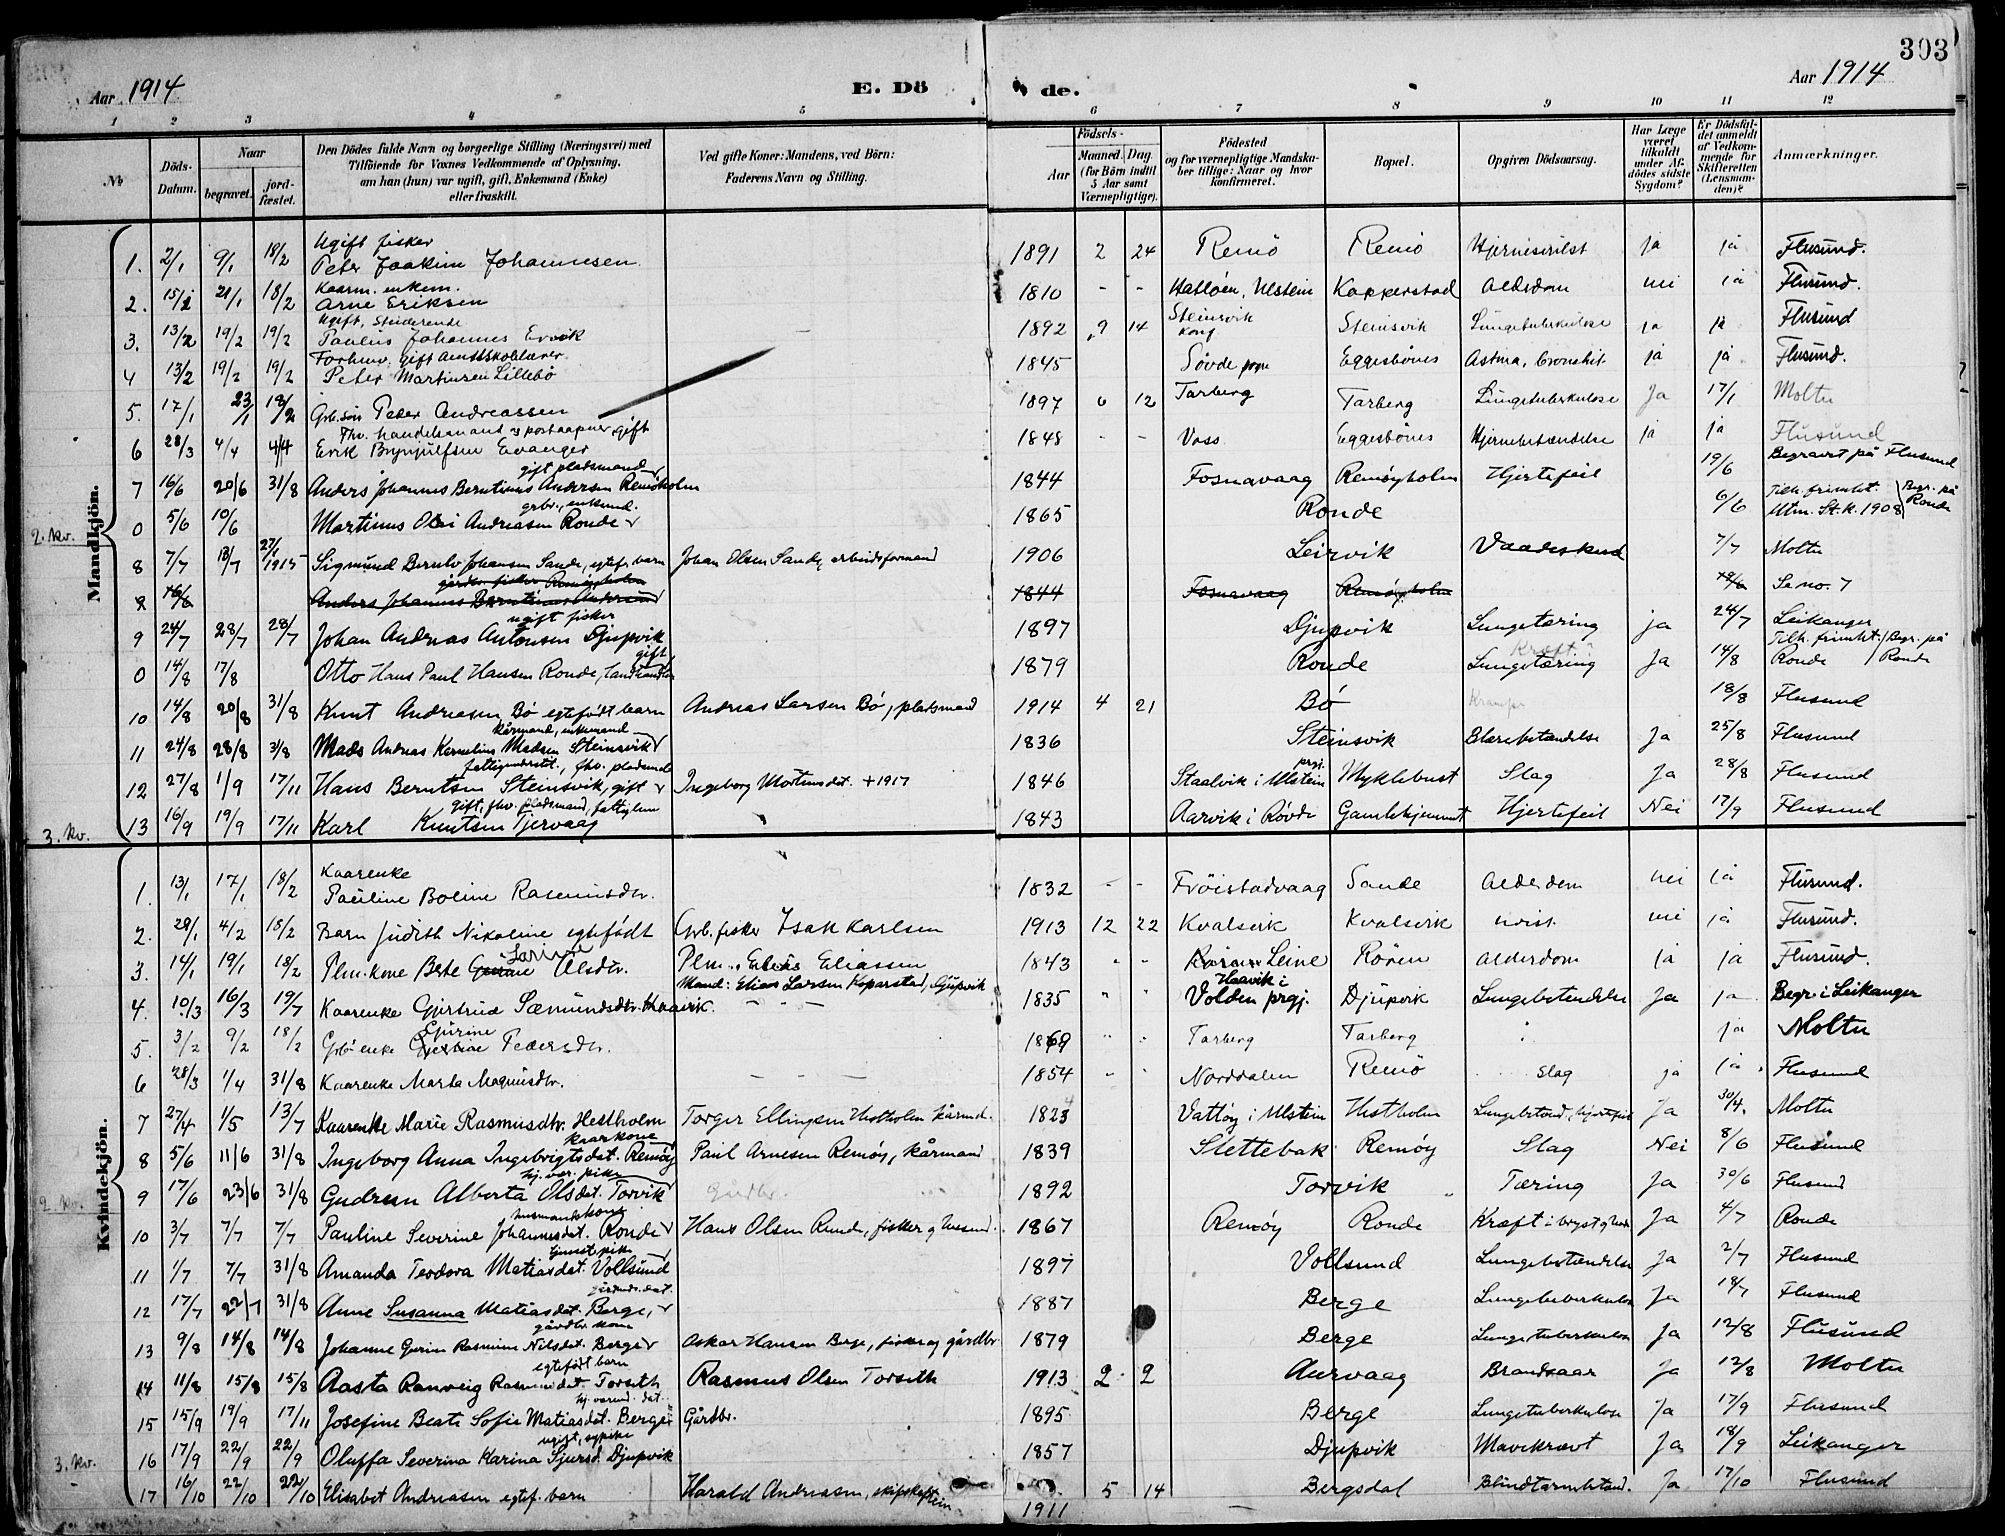 303
Aar 1914
E. Dö de.
Aar 1914
1 2 3 4 5 6 7 8 9 10 11 12
№
Döds-Datum.
Naar begravet. jord-fæstet.
Den Dödes fulde Navn og borgerlige Stilling (Næringsvei) med
Tilföiende for Voxnes Vedkommende af Oplysning,
om han (hun) var ugift, gift, Enkemand (Enke)
eller fraskilt.
Ved gifte Koner: Mandens, ved Börn:
Faderens Navn og Stilling.
Födsels-
Aar
Maaned. Dag.
(for Börn indtil
5 Aar samt
Værnepligtige).
Födested
og for værnepligtige Mandska-
ber tillige: Naar og hvor
konfirmeret.
Bopæl.
Opgiven Dödsaarsag.
Har Læge
været
tilkaldt
under Af-
dödes sidste
Sygdom?
Er Dödsfal-
det anmeldt
af Vedkom-
mende for
Skifteretten
(Lensman-
den)?
Anmærkninger.
Mandkjön.
Ugift fisker
1. 2/1 9/1 18/2 Peter Joakim Johannesen 1891 2 24 Remö Remö Hjernesvulst ja ja Flusund.
Kaarm. enkem.
2. 15/1 21/1 18/2 Arne Eriksen 1810 - - Hatløen, Ulstein Kopperstad Alderdom nei ja Flusund.
Ugift, Studerende
3. 13/2 19/2 19/2 Paulus Johannes Ervik - 1892 9 14 Steinsvik konf. Steinsvik Lungetuberkulose ja ja Flusund
Forhenv. gift Amtsskolelærer
4 13/2 19/2 19/2 Peter Martinsen Lillebö 1845 Søvde prgn Eggesbönes Astma, bronkit ja ja Flusund.
5. 17/1 23/1 18/2 Grb.søn Peder Andreassen 1897 6 12 Tarberg Tarberg Lungetuberkulose Ja 17/1 Moltu
Fhv. handelsmand og postaapner, gift
6 28/3 4/4 4/4 Erik Brynjulfsen Evanger 1848 - - Voss Eggesbönes Hjernebetændelse ja ja Flusund
gift pladsmand
7 16/6 20/6 31/8 Anders Johannes Berntinus Andersen Remöholm 1844 Fosnavaag Remøyholm Hjertefeil 19/6 Begravet på Flusund
grbr., enkemd.
2. kv. 0 5/6 10/6 Martinus Andreasen Ronde 1865 Ronde 6/6 Tilh. frimht. Utm. St. k. 1908 Begr. på Ronde
8 7/7 13/7 27/1 1915 Sigmund Berulv Johansen Sande, egtef. barn Johan Elsen Sande, arbeidsformand 1906 Leirvik Vaadeskud 7/7 Moltu
8 16/6 Anders Johannes Berntinus Andersen 1844 Fosnavaag Remøyholm 19/6 Se no. 7
ugift fisker
9 24/7 28/7 28/7 Johan Andreas Antonsen Djupvik 1897 Djupvik Lungetæring ja 24/7 Leikanger
gift
0 14/8 17/8 Otto Hans Paul Hansen Ronde, landhandler 1879 Ronde Kræft? Lungetæring Ja 14/8 Tilh. frimht. Ronde / Begr. på Ronde
10 14/8 20/8 31/8 Knut Andreasen Bø egtefødt barn Andreas Larsen Bø, pladsmand 1914 4 21 Bö Krampe 18/8 Flusund
kårmand, enkemand
11 24/8 28/8 31/8 Mads Andreas Kornelius Madsen Steinsvik 1836 Steinsvik Blærebetændelse Ja 25/8 Flusund
fattigunderst., fhv. pladsmand
12 27/8 1/9 17/11 Hans Berntsen Steinsvik, gift Ingeborg Mortensdat. + 1917 1846 Staalvik i Ulstein prgj. Myklebust Slag Ja 28/8 Flusund
gift, fhv. pladsmand, fattiglem
3. kv. 13 16/9 19/9 17/11 Karl Knutsen Tjervaag 1843 Aarvik i Røvde Gamlehjemmet Hjertefeil Nei 17/9 Flusund
Kvindekjön.
Kaarenke
1. 13/1 17/1 18/2 Pauline Boline Rasmusdtr. 1832 - - Fröistadvaag Sande Alderdom nei ja Flusund.
2. 29/1 4/2 18/2 Barn Judith Nikoline egtefödt Grb. fisker Isak Karlsen 1913 12 22 Kvalsvik Kvalsvik uvist nei ja Flusund.
3. 14/1 19/1 18/2 Plm. kone Berte Larine Olsdtr. Plm. Elias Eliassen 1843 " " Leine Rören Alderdom ja ja Flusund.
Mand: Elias Larsen Koparstad, Djupvik
4. 10/3 16/3 19/7 Kaarenke Gjertrud Sæmundsdtr. Haavik. 1835 " " Haavik i Volden prgj. Djupvik Lungebetændelse Ja ja Begr. i Leikanger
5. 3/2 9/2 18/2 Grb. enke Gjurine Pedersdtr. 1869 " " Tarberg Tarberg ja Moltu
6 28/3 1/4 31/8 Kaarenke Marta Magnusdtr. 1854 " " Norddalen Remö Slag ja ja Flusund
7 27/4 1/5 13/7 Kaarenke Marie Rasmusdtr. Hestholm Torger Ellingsen Hestholm kårmd. 1824 Vattøy i Ulstein Hestholm Lungebetænd., hjertefeil Ja 30/4. Moltu
kaarkone
8 5/6 11/6 31/8 Ingeborg Anna Ingebrigtsdat. Remøy Paul Arnesen Remøy, kårmand 1839 Slettebak Remøy Slag Nei 8/6 Flusund
hj. vær. pike
2. kv. 9 17/6 23/6 31/8 Gudrun Alberta Olsdat. Torvik Gårdbr. 1892 Torvik Tæring Ja 30/6 Flusund
husmandskone
10 3/7 7/7 7/7 Pauline Severine Johannesdat. Ronde Hans Olsen Runde, fisker og husmd. 1867 Remøy Ronde Kræft i bryst og Ja 4/7 Ronde
tjenestepike
11 1/7 7/7 31/8 Amanda Teodora Matiasdat. Vollsund 1897 Vollsund Lungebetændelse Ja 2/7 Flusund
gårdmds. dat.
12 17/7 22/7 31/8 Anne Susanna Matiasdat. Berge, 1887 Berge Lungetuberkulose Ja 18/7 Flusund
gårdbr. kone
13 9/8 14/8 14/8 Johanne Gurine Rasmine Nilsdat. Berge Oskar Hansen Berge, fisker og gårdbr 1879 Berge Lungetuberkulose Ja 12/8 Flusund
egtefödt barn
14 11/8 15/8 15/8 Aasta Ranveig Rasmusdat. Torseth Rasmus Olsen Torseth 1913 2 2 Aurvaag Brandsaar Ja 12/8 Moltu
hj. værend. dat.
15 15/9 19/9 17/11 Josefine Beate Sofie Matiasdat. Berge Gårdbr. 1895 Berge Lungetuberkulose Ja 17/9 Flusund
ugift, sypike
3. kv. 16 17/9 22/9 22/9 Oluffa Severina Karina Sjursd. Djupvik 1857 Djupvik Mavekræft Ja 18/9 Leikanger
17 16/10 22/10 22/10 Elisabet Andreasen egtef. barn Harald Andreasen, skipskaptein 1911 5 14 Bergsdal Blindtarmbetænd. Ja 17/10 Flusund